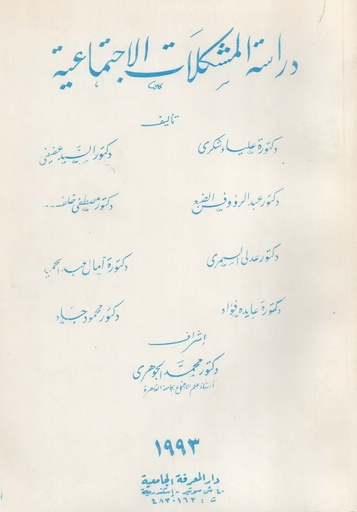 دراسة المشكلات الاجتماعية
تأليف
دكتورة علياء شكري دكتور السيد عفيفي
دكتور عبد الرؤوف الضبع دكتور مصطفى خلف...
دكتور عدلي السمري دكتورة آمال عبد الحميد
دكتورة عايدة فؤاد دكتور محمود جاد
إشراف
دكتور محمد الجوهري
أستاذ علم الاجتماع بجامعة القاهرة
١٩٩٣
دار المعرفة الجامعية
٤٠ ش سوتير - إسكندرية
ت : ٤٨٣٠١٦٣